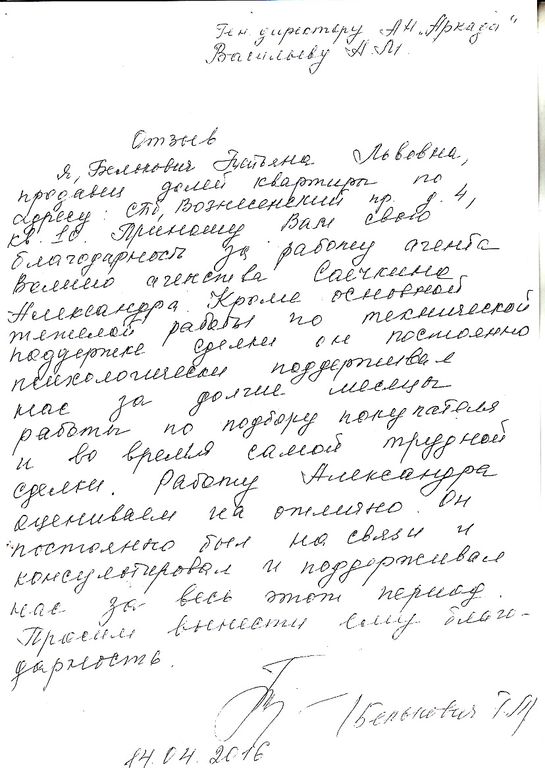 Ген. директору АН „Аркада"
Васильеву А.М.
Отзыв
Я, Бельнович Татьяна Львовна,
продавец долей квартиры по
адресу: СПб, Вознесенский пр. д. 4,
кв. 10. Приношу Вам свою
благодарность за работу агента
Вашего агенства Саечкина
Александра. Кроме основной
тяжелой работы по технической
поддержке сделки он постоянно
психологически поддерживал
нас за долгие месяцы
работы по подбору покупателя
и во время самой трудной
сделки. Работу Александра
оцениваем на отлично. Он
постоянно был на связи и
консультировал и поддерживал
нас за весь этот период.
Просим вынести ему благо-
дарность.
(Бельнович Т.Л)
14.04.2016